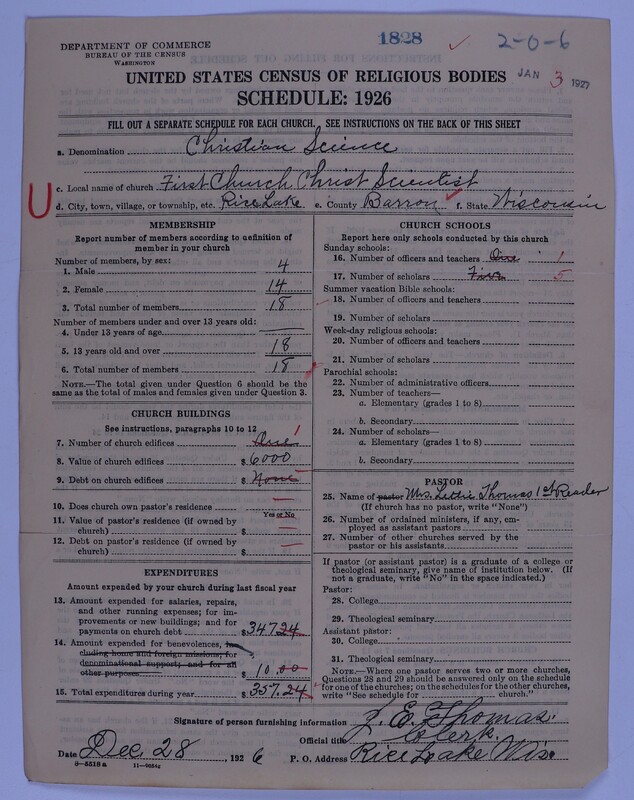 1828 2-0-6
DEPARTMENT OF COMMERCE
BUREAU OF THE CENSUS
WASHINGTON
JAN 3 1927
UNITED STATES CENSUS OF RELIGIOUS BODIES
SCHEDULE: 1926
FILL OUT A SEPARATE SCHEDULE FOR EACH CHURCH. SEE INSTRUCTIONS ON THE BACK OF THIS SHEET
a. Denomination Christian Science
U
c. Local name of church First Church Christ Scientist
d. City, town, village, or township, etc. Rice Lake e. County Barron f. State Wisconsin
MEMBERSHIP
Report number of members according to definition of
member in your church
Number of members, by sex:
1. Male 4
2. Female 14
3. Total number of members 18
Number of members under and over 13 years old:
4. Under 13 years of age
5. 13 years old and over 18
6. Total number of members 18
NOTE.—The total given under Question 6 should be the
same as the total of males and females given under Question 3.
CHURCH BUILDINGS
See instructions, paragraphs 10 to 12
7. Number of church edifices One 1
8. Value of church edifices $ 6000
9. Debt on church edifices $ None
10. Does church own pastor's residence
Yes or No
11. Value of pastor's residence (if owned by
church) $
12. Debt on pastor's residence (if owned by
church) $
EXPENDITURES
Amount expended by your church during last fiscal year
13. Amount expended for salaries, repairs,
and other running expenses; for im-
provements or new buildings; and for
payments on church debt $ 347.24
14. Amount expended for benevolences, in-
cluding home and foreign missions; for
denominational support; and for all
other purposes $ 10.00
15. Total expenditures during year $ 357.24
CHURCH SCHOOLS
Report here only schools conducted by this church
Sunday schools:
16. Number of officers and teachers One 1
17. Number of scholars Five 5
Summer vacation Bible schools:
18. Number of officers and teachers
19. Number of scholars
Week-day religious schools:
20. Number of officers and teachers
21. Number of scholars
Parochial schools:
22. Number of administrative officers
23. Number of teachers—
a. Elementary (grades 1 to 8)
b. Secondary
24. Number of scholars—
a. Elementary (grades 1 to 8)
b. Secondary
PASTOR
25. Name of pastor Mrs. Lettie Thomas 1st Reader
(If church has no pastor, write "None")
26. Number of ordained ministers, if any, em-
ployed as assistant pastors
27. Number of other churches served by the
pastor or his assistants
If pastor (or assistant pastor) is a graduate of a college or
theological seminary, give name of institution below. (If
not a graduate, write "No" in the space indicated.)
Pastor:
28. College
29. Theological seminary
Assistant pastor:
30. College
31. Theological seminary
NOTE.—Where one pastor serves two or more churches,
Questions 28 and 29 should be answered only on the schedule
for one of the churches; on the schedules for the other churches,
write "See schedule for church."
Signature of person furnishing information J. E. Thomas.
Official title Clerk.
Date Dec 28, 1926 P. O. Address Rice Lake Wis.
8-5518a